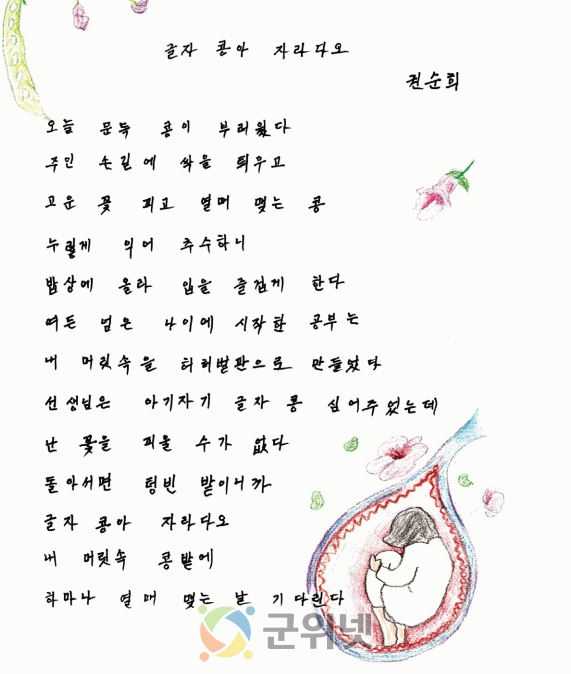 글자 콩아 자라다오
권순희
오늘 문득 콩이 부러웠다
주인 손길에 싹을 틔우고
고운 꽃 피고 열매 맺는 콩
누렇게 익어 추수하니
밥상에 올라 입을 즐겁게 한다
여든 넘은 나이에 시작한 공부는
내 머릿속을 허허벌판으로 만들었다
선생님은 아기자기 글자 콩 심어주었는데
난 꽃을 피울 수가 없다
돌아서면 텅빈 밭이니까
글자 콩아 자라다오
내 머릿속 콩밭에
하마나 열매 맺는 날 기다린다
군위넷